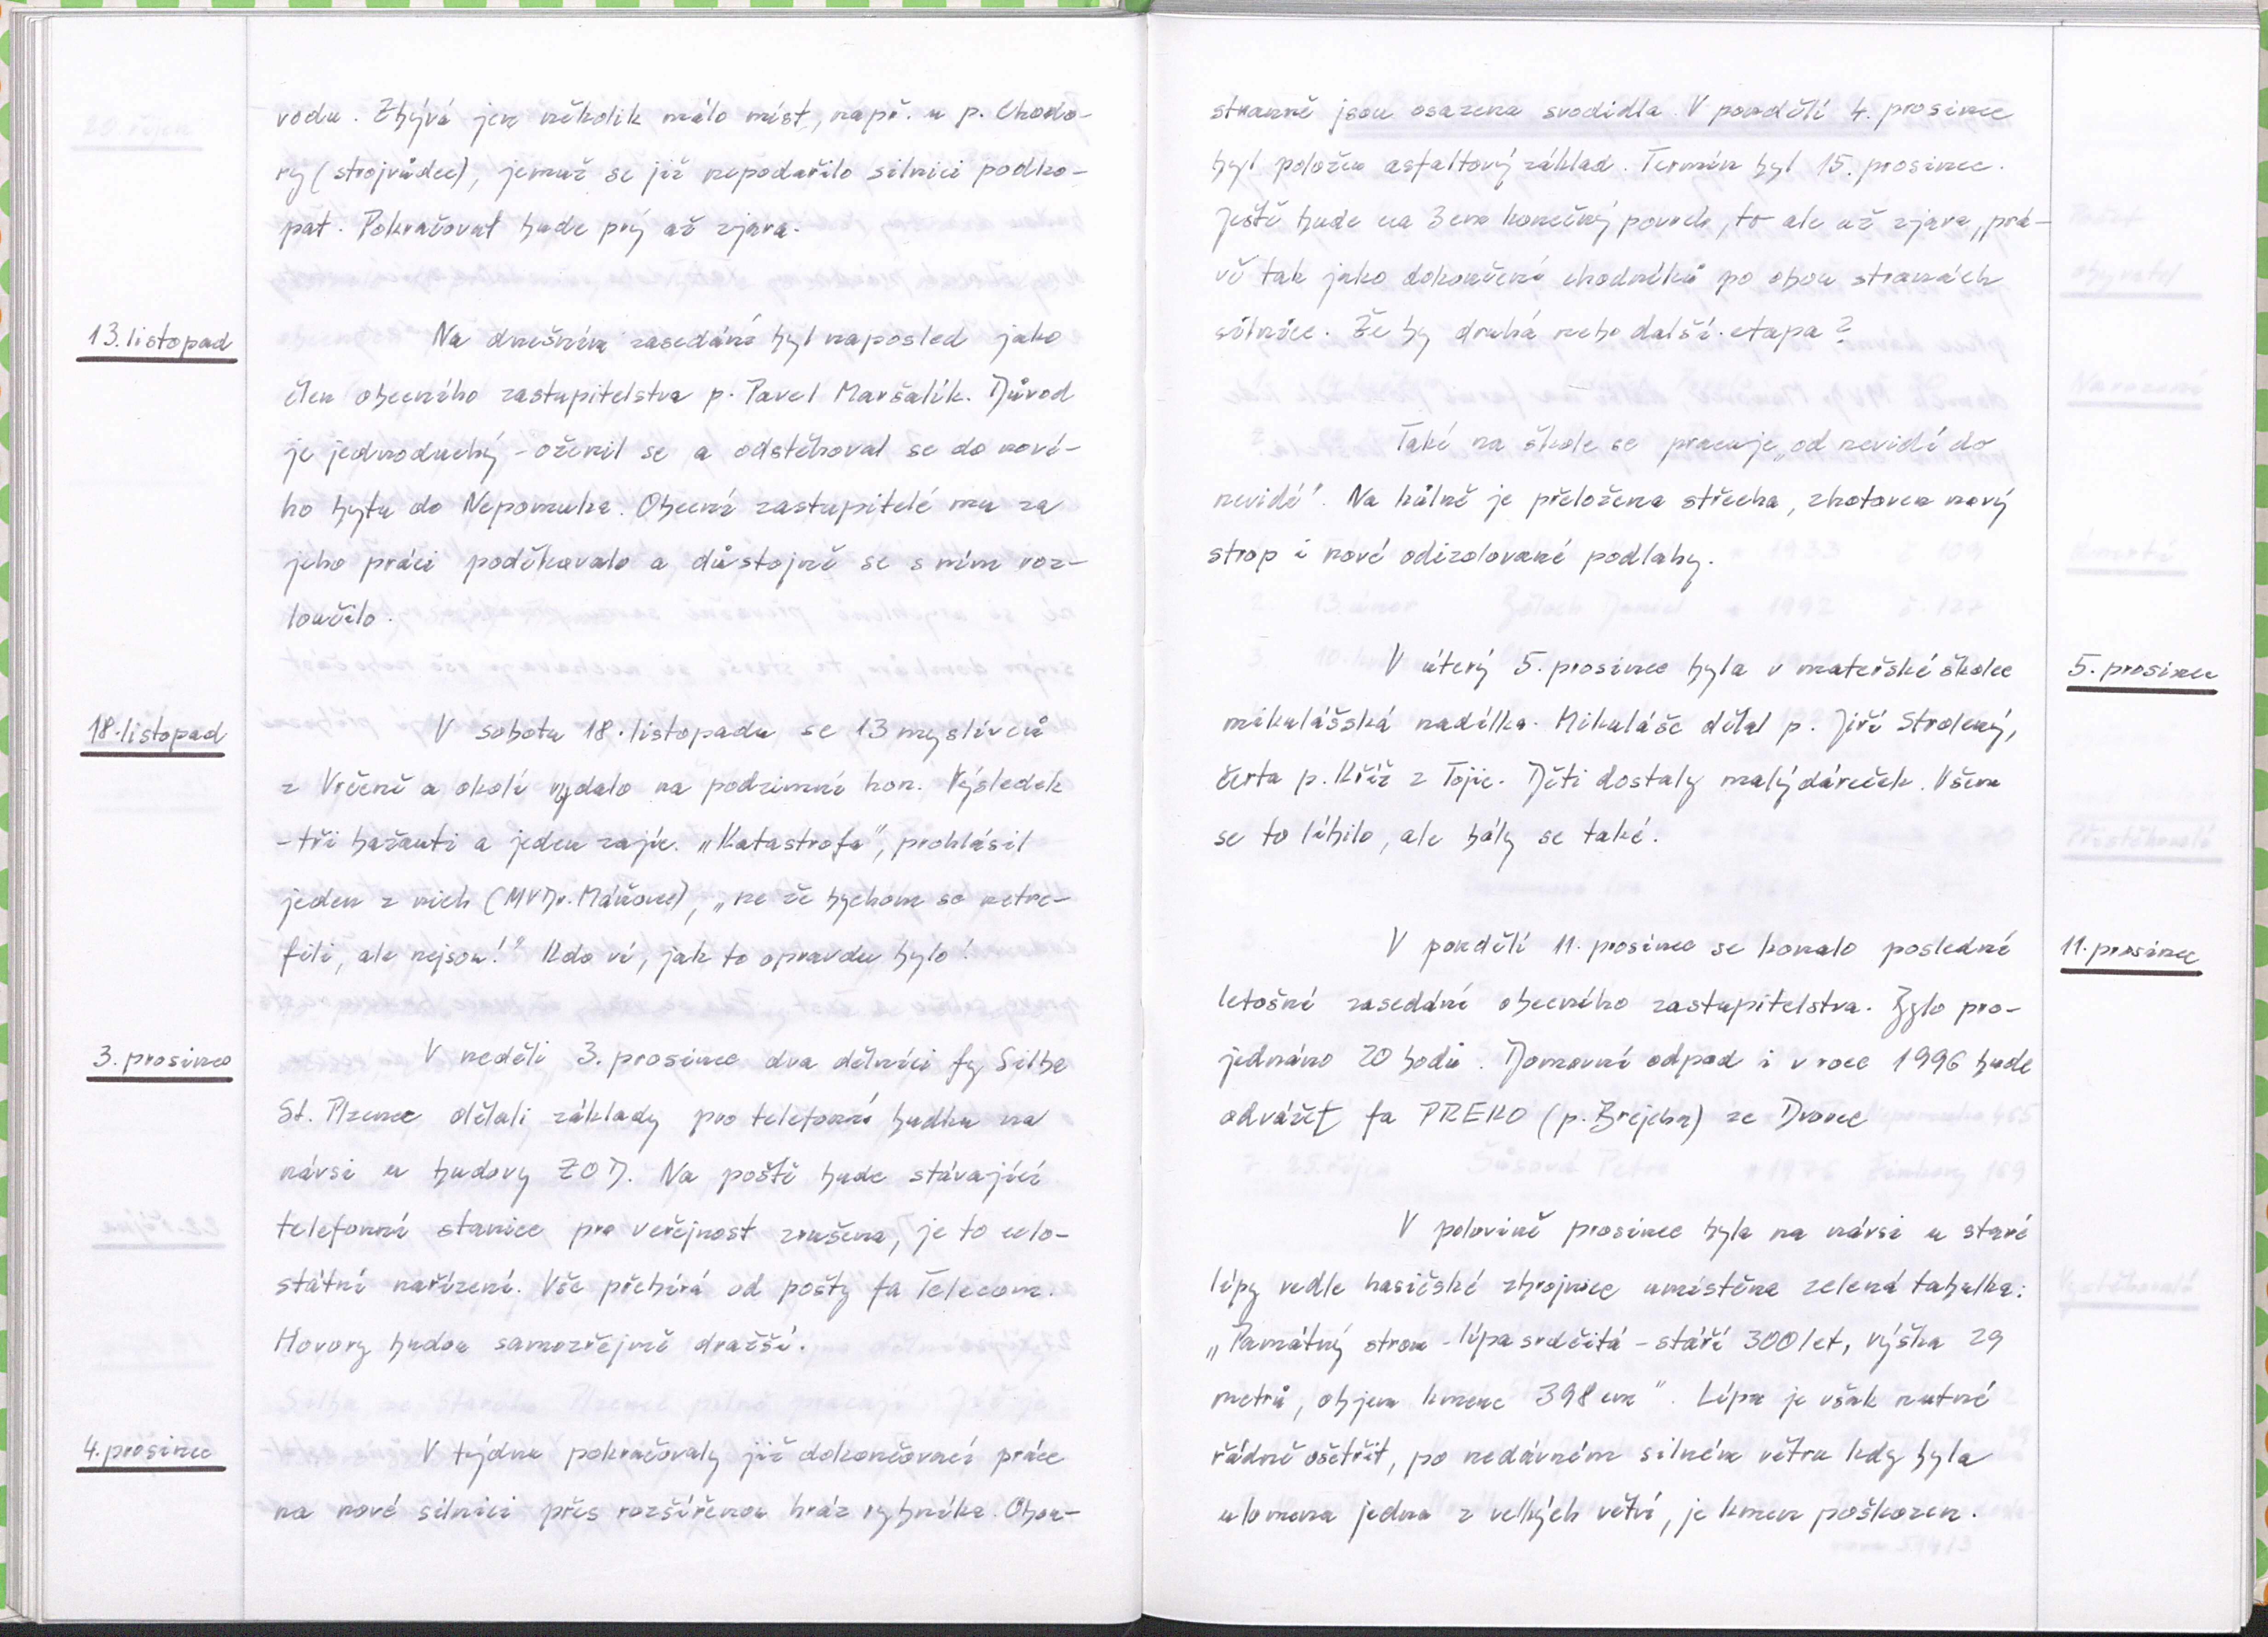 vodu. Zbývá jen několik málo míst, např. u p. Chodo-
ry (strojvůdce), jemuž se již nepodařilo silnici podko-
pat. Pokračovat bude prý až zjara.
13. listopad
Na dnešním zasedání byl naposled jako
člen obecního zastupitelstva p. Pavel Maršalík. Důvod
je jednoduchý - oženil se a odstěhoval se do nové-
ho bytu do Nepomuka. Obecní zastupitelé mu za
jeho práci poděkovalo a důstojně se s ním roz-
loučilo.
18. listopad
V sobotu 18. listopadu se 13 myslivců
z Vrčeně a okolí vydalo na podzimní hon. Výsledek
- tři bažanti a jeden zajíc. „Katastrofa", prohlásil
jeden z nich (MVDr. Mášonec), „ne že bychom se netre-
fili, ale nejsou!" Kdo ví, jak to opravdu bylo!
3. prosince
V neděli 3. prosince dva dělníci fy Silba
St. Plzenec dělali základy pro telefonní budku na
návsi u budovy ZOD. Na poště bude stávající
telefonní stanice pro veřejnost zrušena, je to celo-
státní nařízení. Vše přebírá od pošty fa Telecom.
Hovory budou samozřejmě dražší.
4. prosince
V týdnu pokračovaly již dokončovací práce
na nové silnici přes rozšířenou hráz rybníka. Obou-
stranně jsou osazena svodidla. V pondělí 4. prosince
byl položen asfaltový základ. Termín byl 15. prosince.
Ještě bude na 3 cm konečný povrch, to ale až zjara, prá-
vě tak jako dokončení chodníků po obou stranách
silnice. Že by druhá nebo další etapa?
Také na škole se pracuje „od nevidí do
nevidí". Na kůlně je přeložena střecha, zhotoven nový
strop i nové odizolované podlahy.
5. prosince
V úterý 5. prosince byla v mateřské školce
mikulášská nadílka. Mikuláše dělal p. Jiří Strolený,
čerta p. Kříž z Tojic. Děti dostaly malý dáreček. Všem
se to líbilo, ale bály se také.
11. prosince
V pondělí 11. prosince se konalo poslední
letošní zasedání obecního zastupitelstva. Bylo pro-
jednáno 20 bodů. Domovní odpad i v roce 1996 bude
odvážet fa PREKO (p. Brejcha) ze Dvorce
V polovině prosince byla na návsi u staré
lípy vedle hasičské zbrojnice umístěna zelená tabulka:
„Památný strom - lípa srdčitá - stáří 300 let, výška 29
metrů, objem kmene 398 cm". Lípu je však nutné
řádně ošetřit, po nedávném silném větru kdy byla
ulomena jedna z velkých větví, je kmen poškozen.